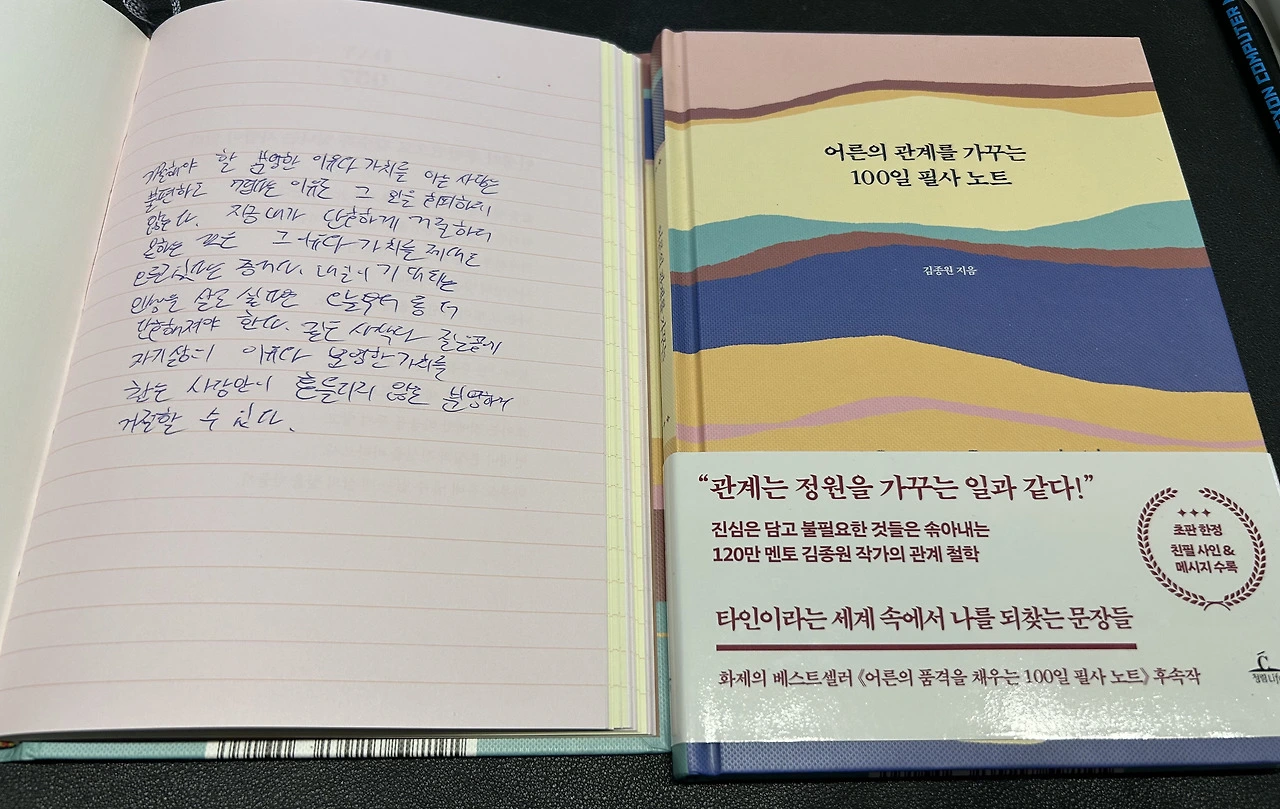 거절해야 할 분명한 이유나 가치를 아는 사람은
불편하고 껍나는 이유로 그 일을 회피하지
않는다. 지금 내가 단호하게 거절하지
못하는 것은 그 이유나 가치를 제대로
모르고 있다는 증거다. 내일이 기대되는
인생을 살고 싶다면 오늘부터 좀 더
단호해져야 한다. 굳은 사색과 끝없는
자기 삶의 이유나 분명한 가치를
찾은 사람만이 흔들리지 않고 분명하게
거절할 수 있다.
어른의 관계를 가꾸는
100일 필사 노트
김종원 지음
“관계는 정원을 가꾸는 일과 같다!”
진심은 담고 불필요한 것들은 솎아내는
120만 멘토 김종원 작가의 관계 철학
초판 한정
친필 사인 &
메시지 수록
타인이라는 세계 속에서 나를 되찾는 문장들
화제의 베스트셀러 《어른의 품격을 채우는 100일 필사 노트》 후속작
청림Life
COMPUTER